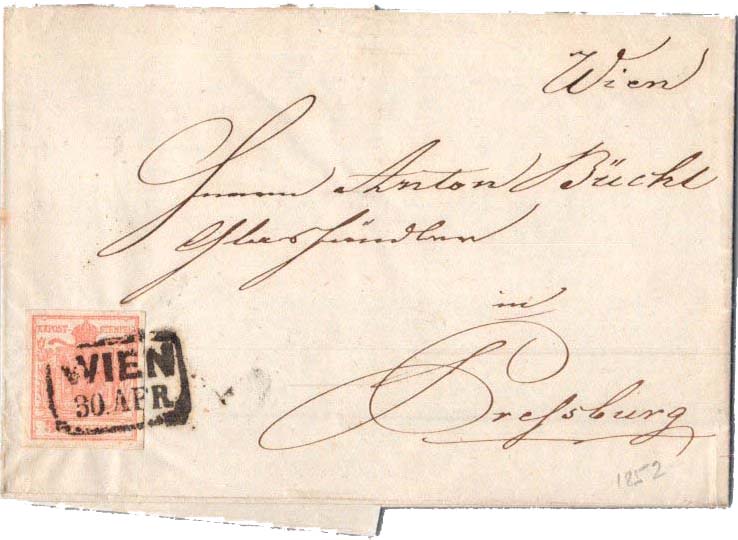 Wien
Herrn Anton Büchl
Glashändler
in
Pressburg
KK POST-STEMPEL
WIEN
30. APR.
1852